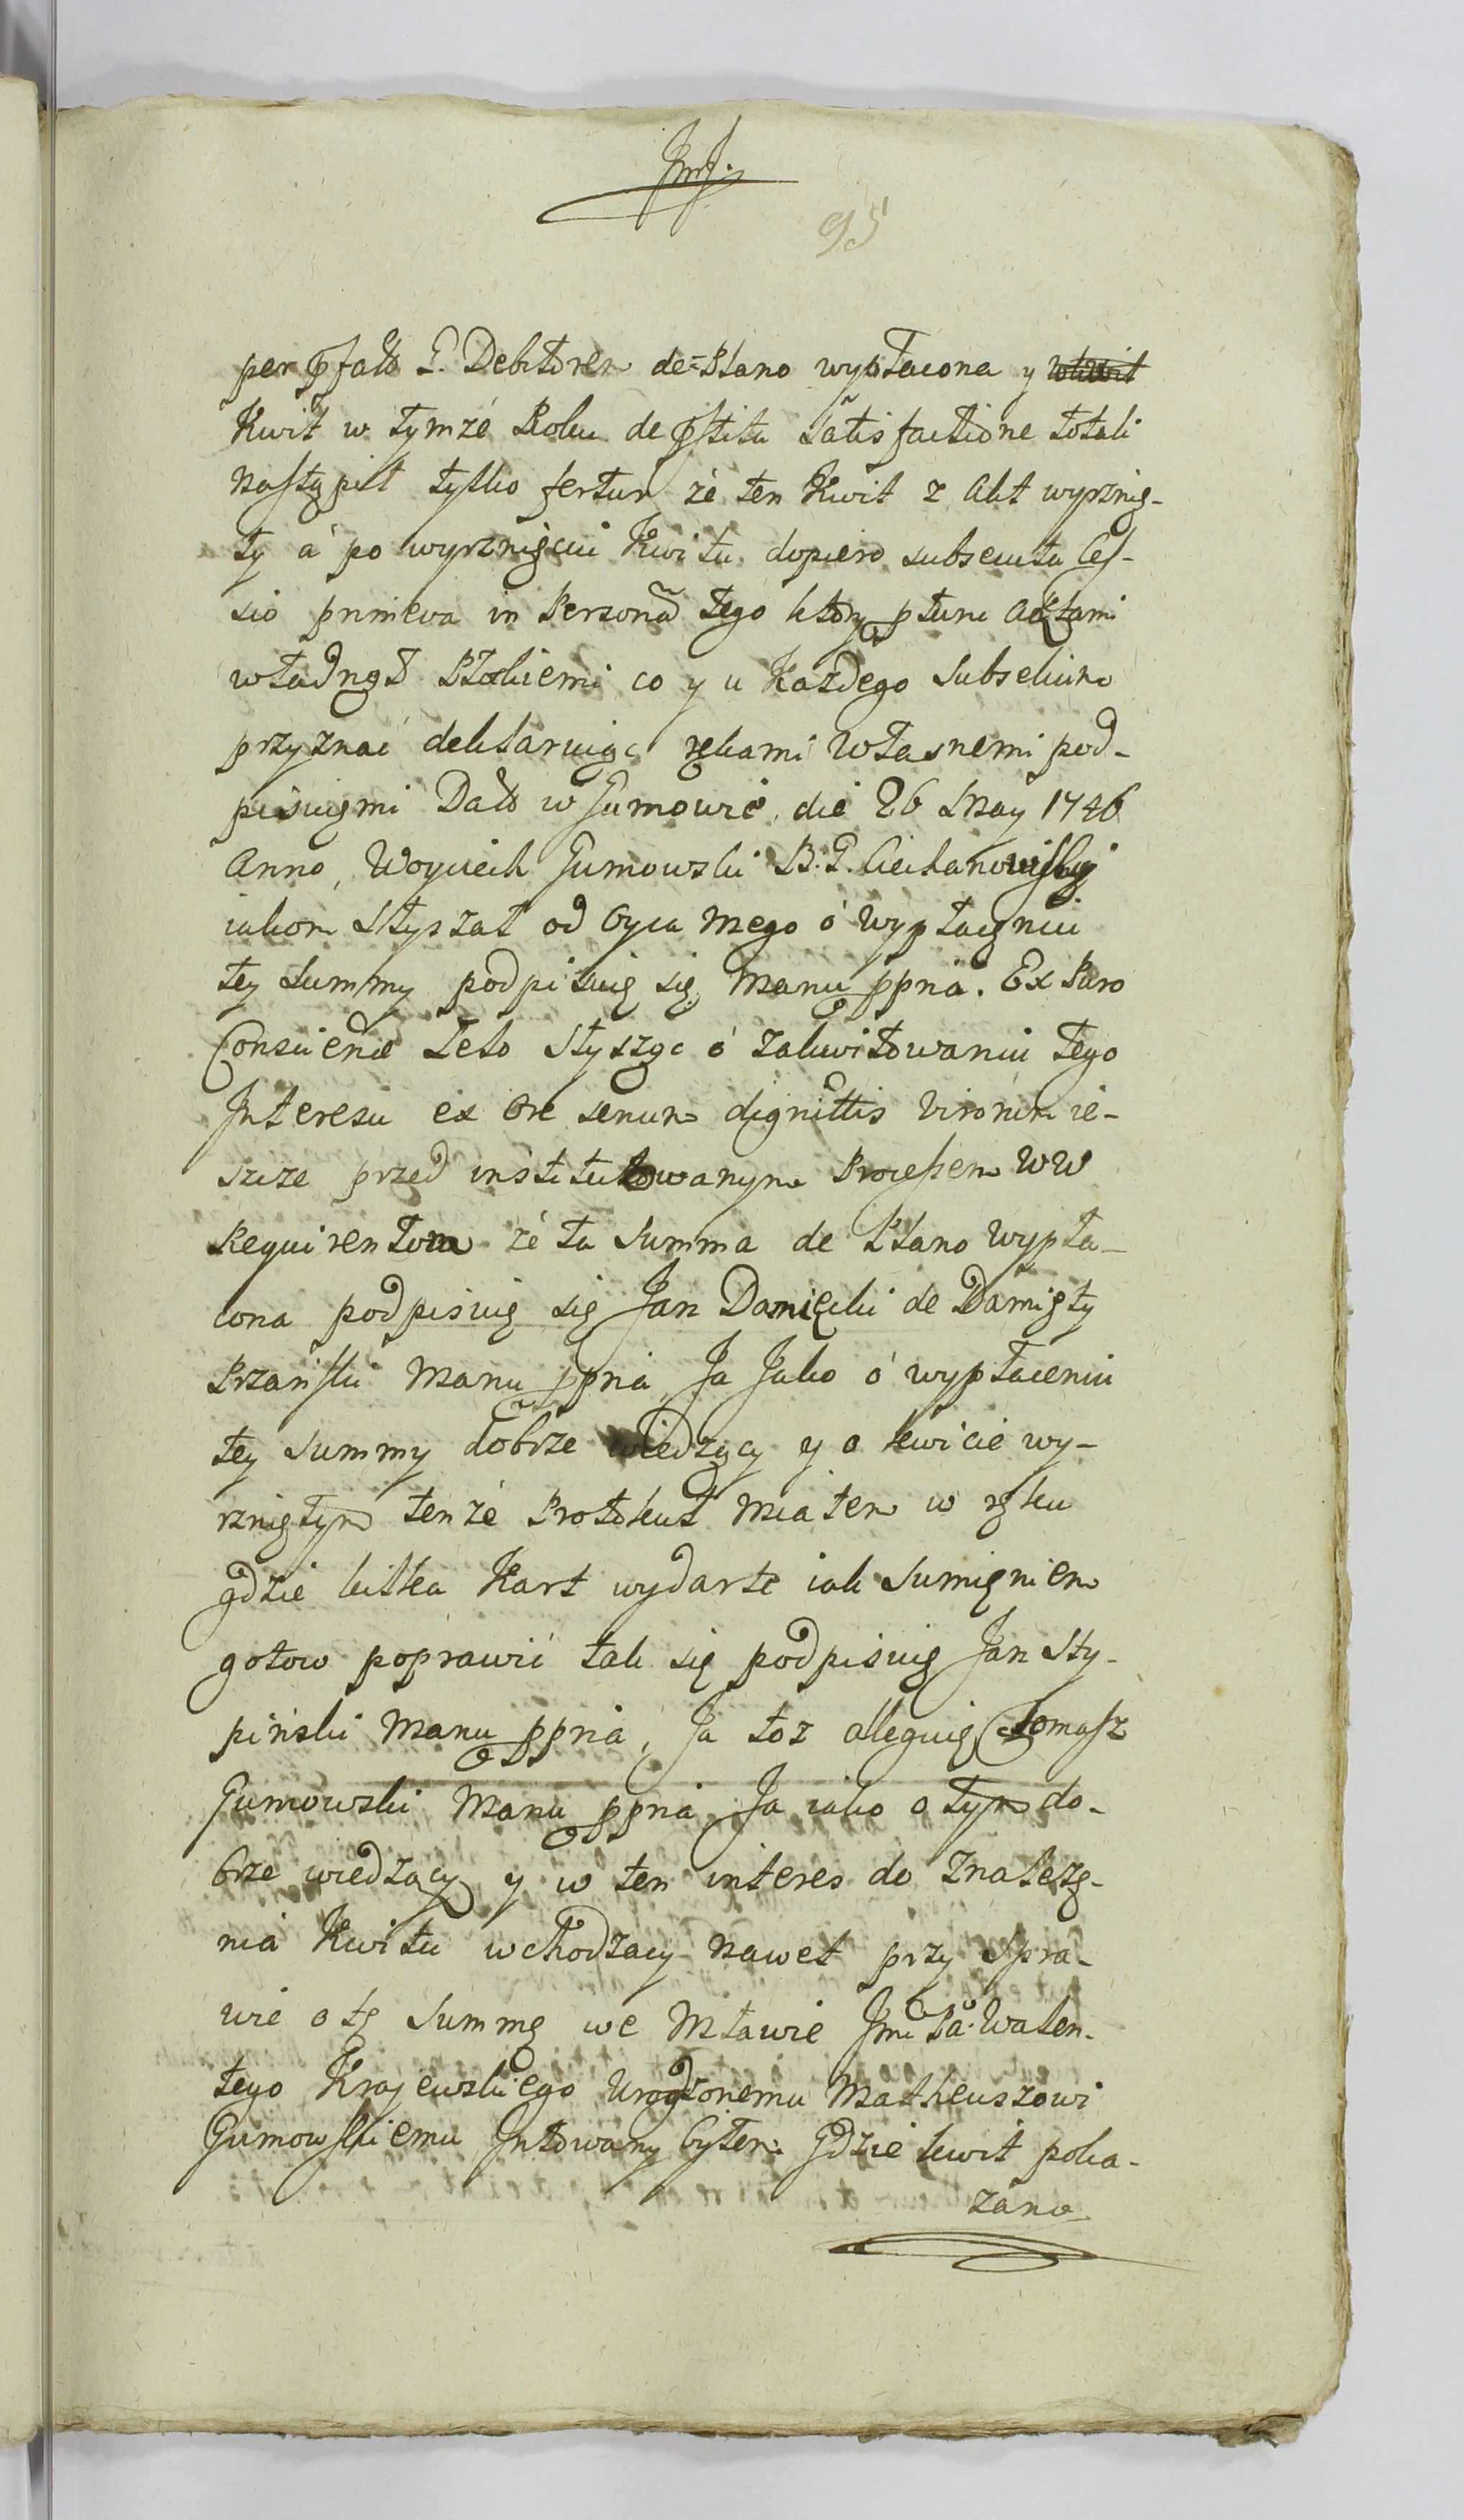 JmJ.
95
per pfato G. Debitorem de=Plano wypłacona y
Kwit w tymże Roku de pstita Satisfactione totali
nastąpił tylko fertur że ten Kwit z Akt wyrznię-
ty á po wyrznięciu Kwitu dopiero subsecuta Ces-
sio primeva in Personã tego ktory ptunc Aktami
władnął Płockiemi co y u Każdego Subselium
przyznać deklaruiąc rękami własnemi pod-
pisuięmi Datt w Gumowie die 26 May 1746
Anno, Woyciech Gumowski B. G. Ciechanowskỹ
iakom słyszał od Oyca mego ó wypłacęniu
tey summy podpisuię się Manu ppria. Ex Puro
Conscientiæ Zelo słysząc ó zakwitowaniu tego
Interesu ex Ore senum dignittis Virorum ie-
szcze przed instituowanym Processem WW
Requirentow że ta Summa de Plano wypła-
cona podpisuię się Jan Damięcki de Damięty
Przański Manu ppria, Ja Jako ó wypłaceniu
tey summy dobrze wiedzący y o kwicie wy-
rzniętym tenże Protokuł miałem w ręku
gdzie kilka Kart wydarte iak Sumięniem
gotow poprawić tak się podpisuię Jan Sty-
piński Manu ppria, Ja toż alleguię Tomasz
Gumowski Manu ppria, Ja iako o tym do-
brze wiedzący y w ten interes do Znalezę-
nia Kwitu wchodzący nawet przy Spra-
wie o tę Summę we Mławie Jmci Pa. Walen-
tego Krajewskiego Urodzonemu Matheuszowi
Gumowskiemu Intowany byłem gdzie kwit poka-
zano